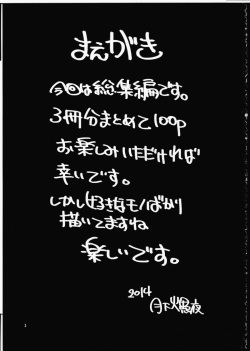 まえがき
今回は総集編です。
3冊分まとめて100p
お楽しみいただければ
幸いです。
しかし好きなモノばかり
描いてますね
楽しいです。
2014
月下火煬夜